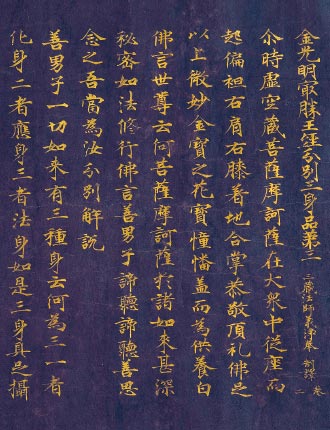 金光明最勝王經分別三身品第三 三藏法師義淨奉 制譯 卷二
尒時虛空藏菩薩摩訶薩在大衆中從座而
起偏袒右肩右膝著地合掌恭敬頂礼佛足
以上微妙金寶之花寶幢幡蓋而為供養白
佛言世尊云何菩薩摩訶薩於諸如來甚深
秘密如法修行佛言善男子諦聽諦聽善思
念之吾當為汝分別解說
善男子一切如來有三種身云何為三一者
化身二者應身三者法身如是三身具足攝